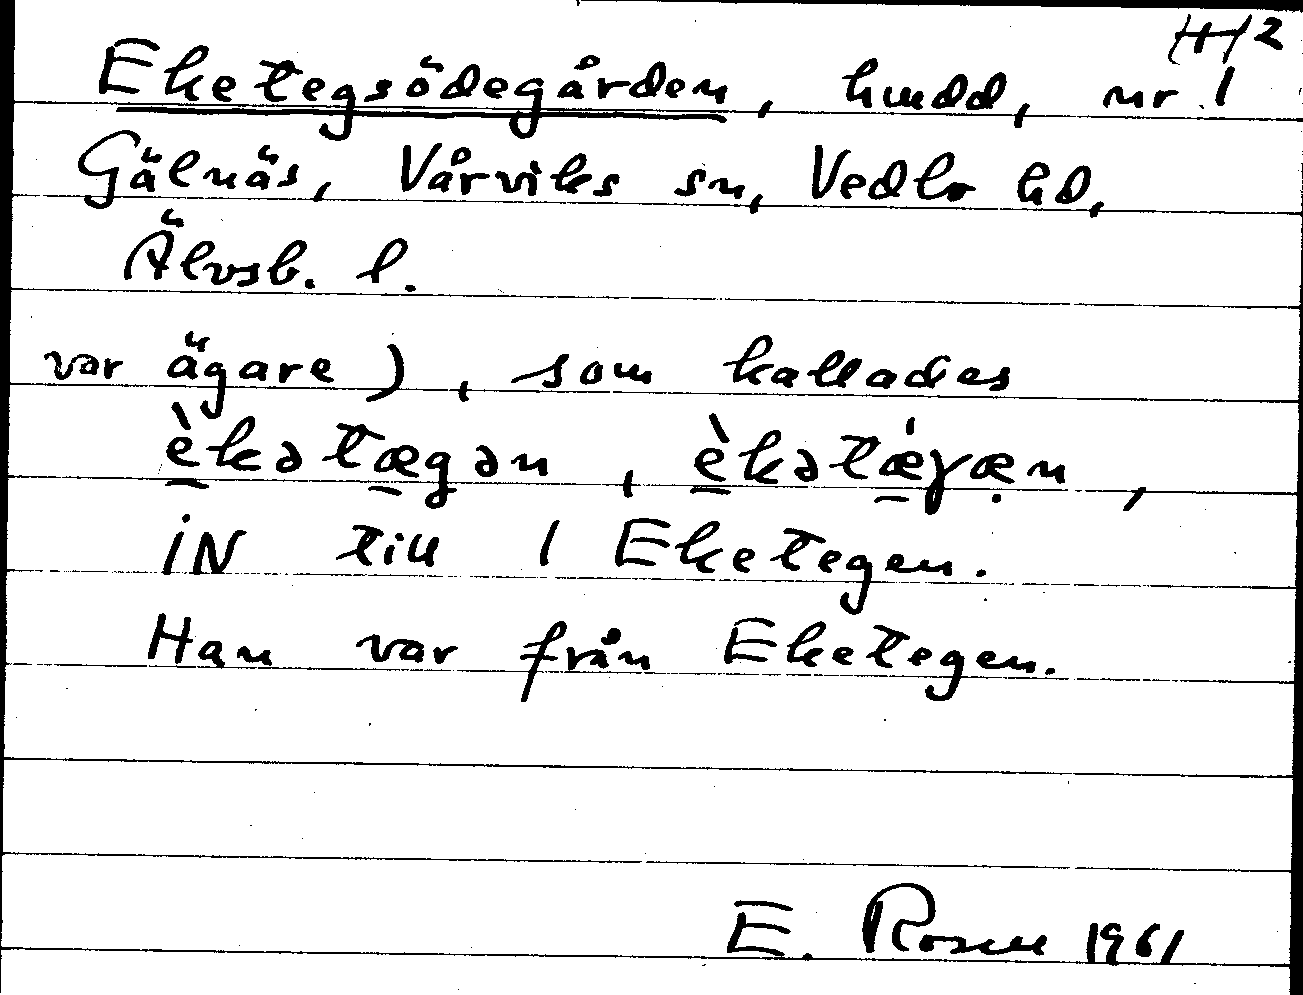 (H) 2
Eketegsödegården, hmdd, nr 1
Gälnäs, Vårviks sn, Vedbo hd,
Älvsb. l.
var ägare), som kallades
èkətægən, èkətǽɣæ̣n,
iN till 1 Eketegen.
Han var från Eketegen.
E. Rosen 1961